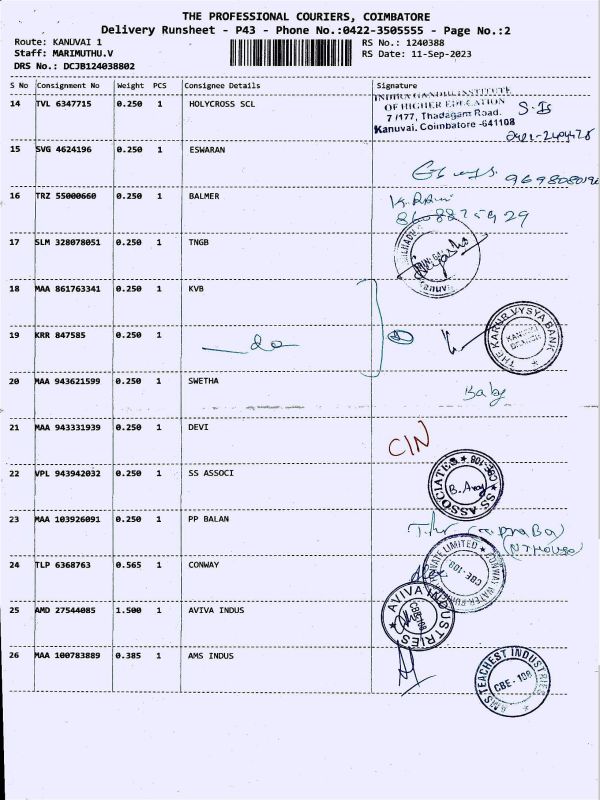 THE PROFESSIONAL COURIERS, COIMBATORE
Delivery Runsheet - P43 - Phone No.:0422-3505555 - Page No.:2
Route: KANUVAI 1
Staff: MARIMUTHU.V
DRS No.: DCJB124038802
RS No.: 1240388
RS Date: 11-Sep-2023
S No Consignment No Weight PCS Consignee Details Signature
14 TVL 6347715 0.250 1 HOLYCROSS SCL
INDIRA GANDHI INSTITUTE
OF HIGHER EDUCATION
7/177, Thadagam Road.
Kanuvai, Coimbatore -641108
15 SVG 4624196 0.250 1 ESWARAN
16 TRZ 55000660 0.250 1 BALMER
17 SLM 328078051 0.250 1 TNGB
18 MAA 861763341 0.250 1 KVB
19 KRR 847585 0.250 1 do
THE KARUR VYSYA BANK
KANUVAI
BRANCH
20 MAA 943621599 0.250 1 SWETHA Baby
21 MAA 943331939 0.250 1 DEVI CIN
22 VPL 943942032 0.250 1 SS ASSOCI
SS ASSOCIATES CBE-108
23 MAA 103926091 0.250 1 PP BALAN
24 TLP 6368763 0.565 1 CONWAY
CBE-108
25 AMD 27544085 1.500 1 AVIVA INDUS
AVIVA INDUSTRIES
CBE-108
26 MAA 100783889 0.385 1 AMS INDUS
TEACHEST INDUSTRIES
CBE-108